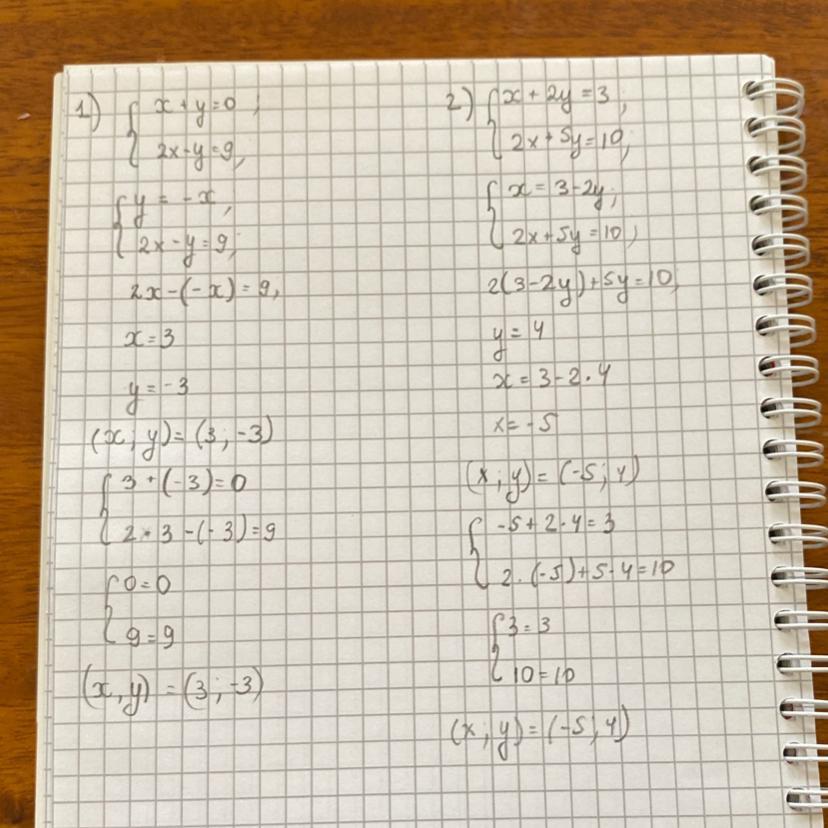 1) { x + y = 0 ;
2x - y = 9,
{ y = -x,
2x - y = 9;
2x - (-x) = 9,
x = 3
y = -3
(x; y) = (3; -3)
{ 3 + (-3) = 0
2 · 3 - (-3) = 9
{ 0 = 0
9 = 9
(x, y) = (3; -3)
2) { x + 2y = 3,
2x + 5y = 10,
{ x = 3 - 2y;
2x + 5y = 10;
2(3 - 2y) + 5y = 10,
y = 4
x = 3 - 2 · 4
x = -5
(x; y) = (-5; 4)
{ -5 + 2 · 4 = 3
2 · (-5) + 5 · 4 = 10
{ 3 = 3
10 = 10
(x; y) = (-5; 4)